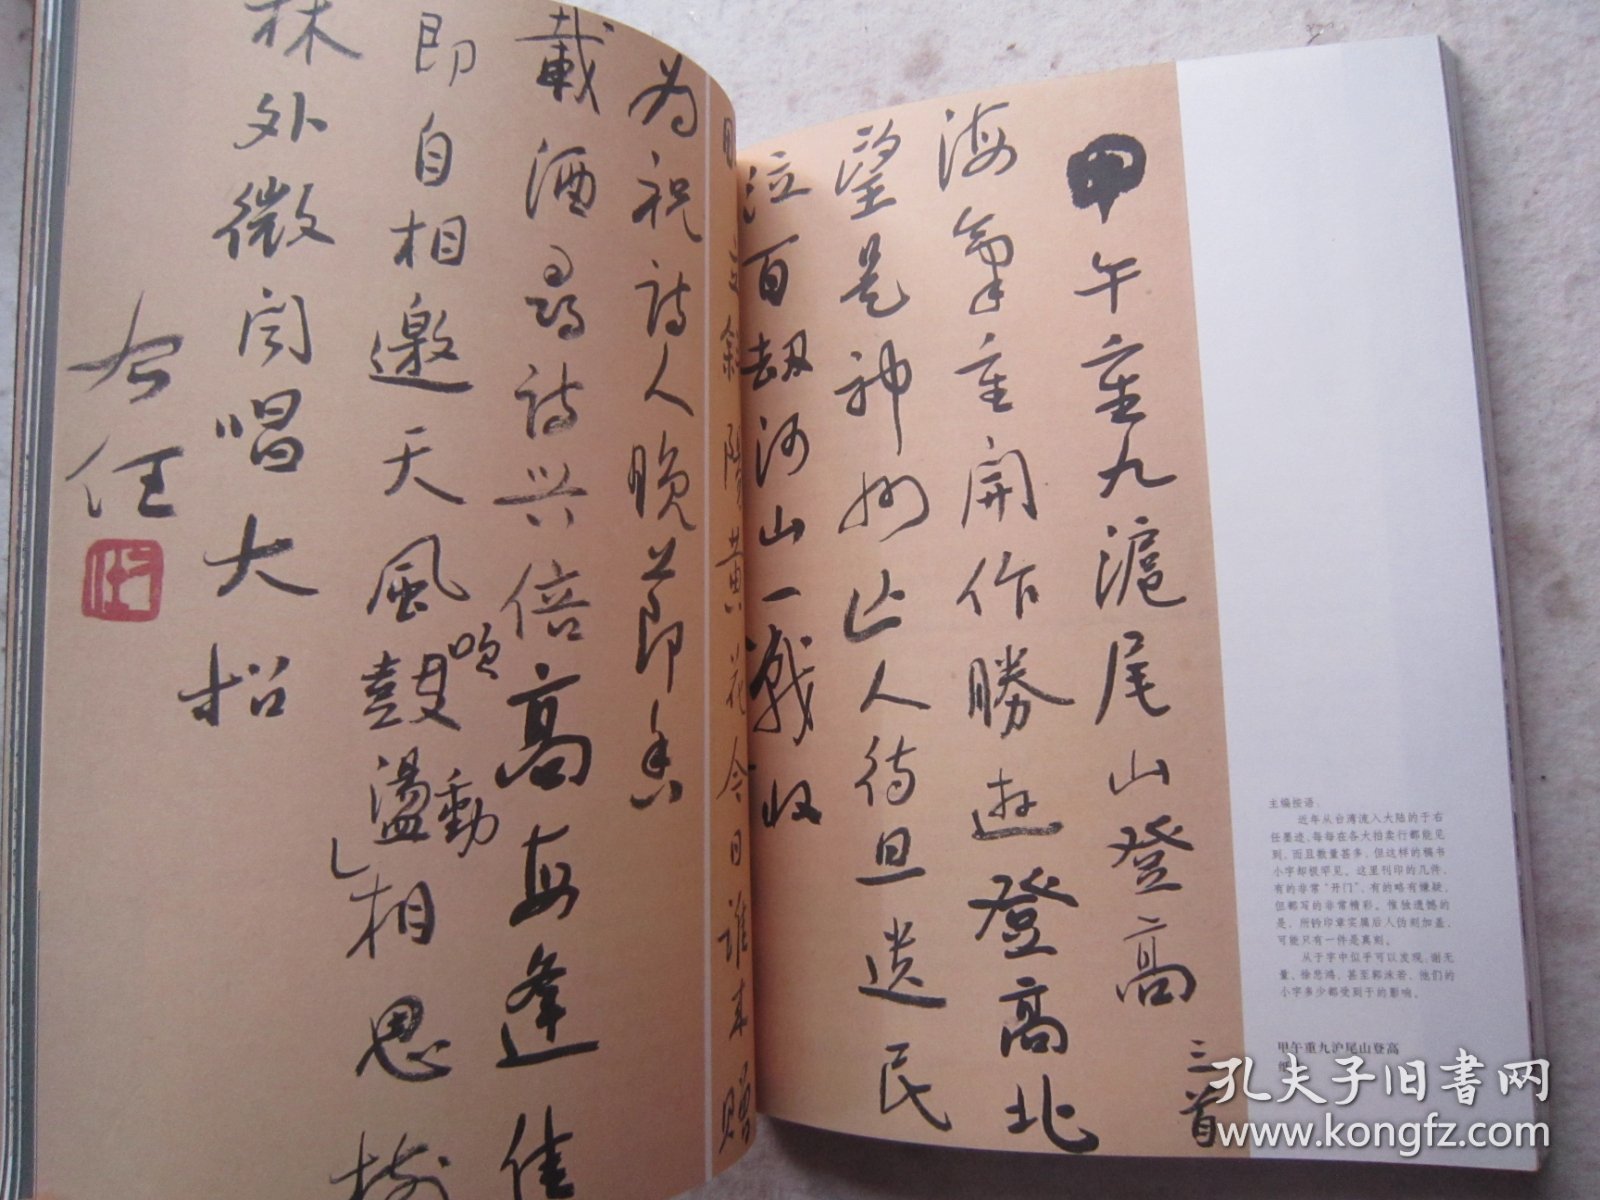 甲午重九滬尾山登高三首
海氣重開作勝遊登高北
望是神州亡人待旦遺民
泣百劫河山一戰收
斜陽黃花今日誰來贈
為祝詩人晚節香
載酒尋詩興倍高每逢佳
即自相邀天風鼓盪相思樹
動
林外微聞唱大招
右任
主编按语：
近年从台湾流入大陆的于右
任墨迹，每每在各大拍卖行都能见
到，而且数量甚多，但这样的稿书
小字却极罕见。这里刊印的几件，
有的非常“开门”，有的略有嫌疑，
但都写的非常精彩。惟独遗憾的
是，所钤印章实属后人伪刻加盖，
可能只有一件是真刻。
从于字中似乎可以发现，谢无
量、徐悲鸿，甚至郭沫若，他们的
小字多少都受到于的影响。
甲午重九沪尾山登高
孔夫子旧书网
www.kongfz.com